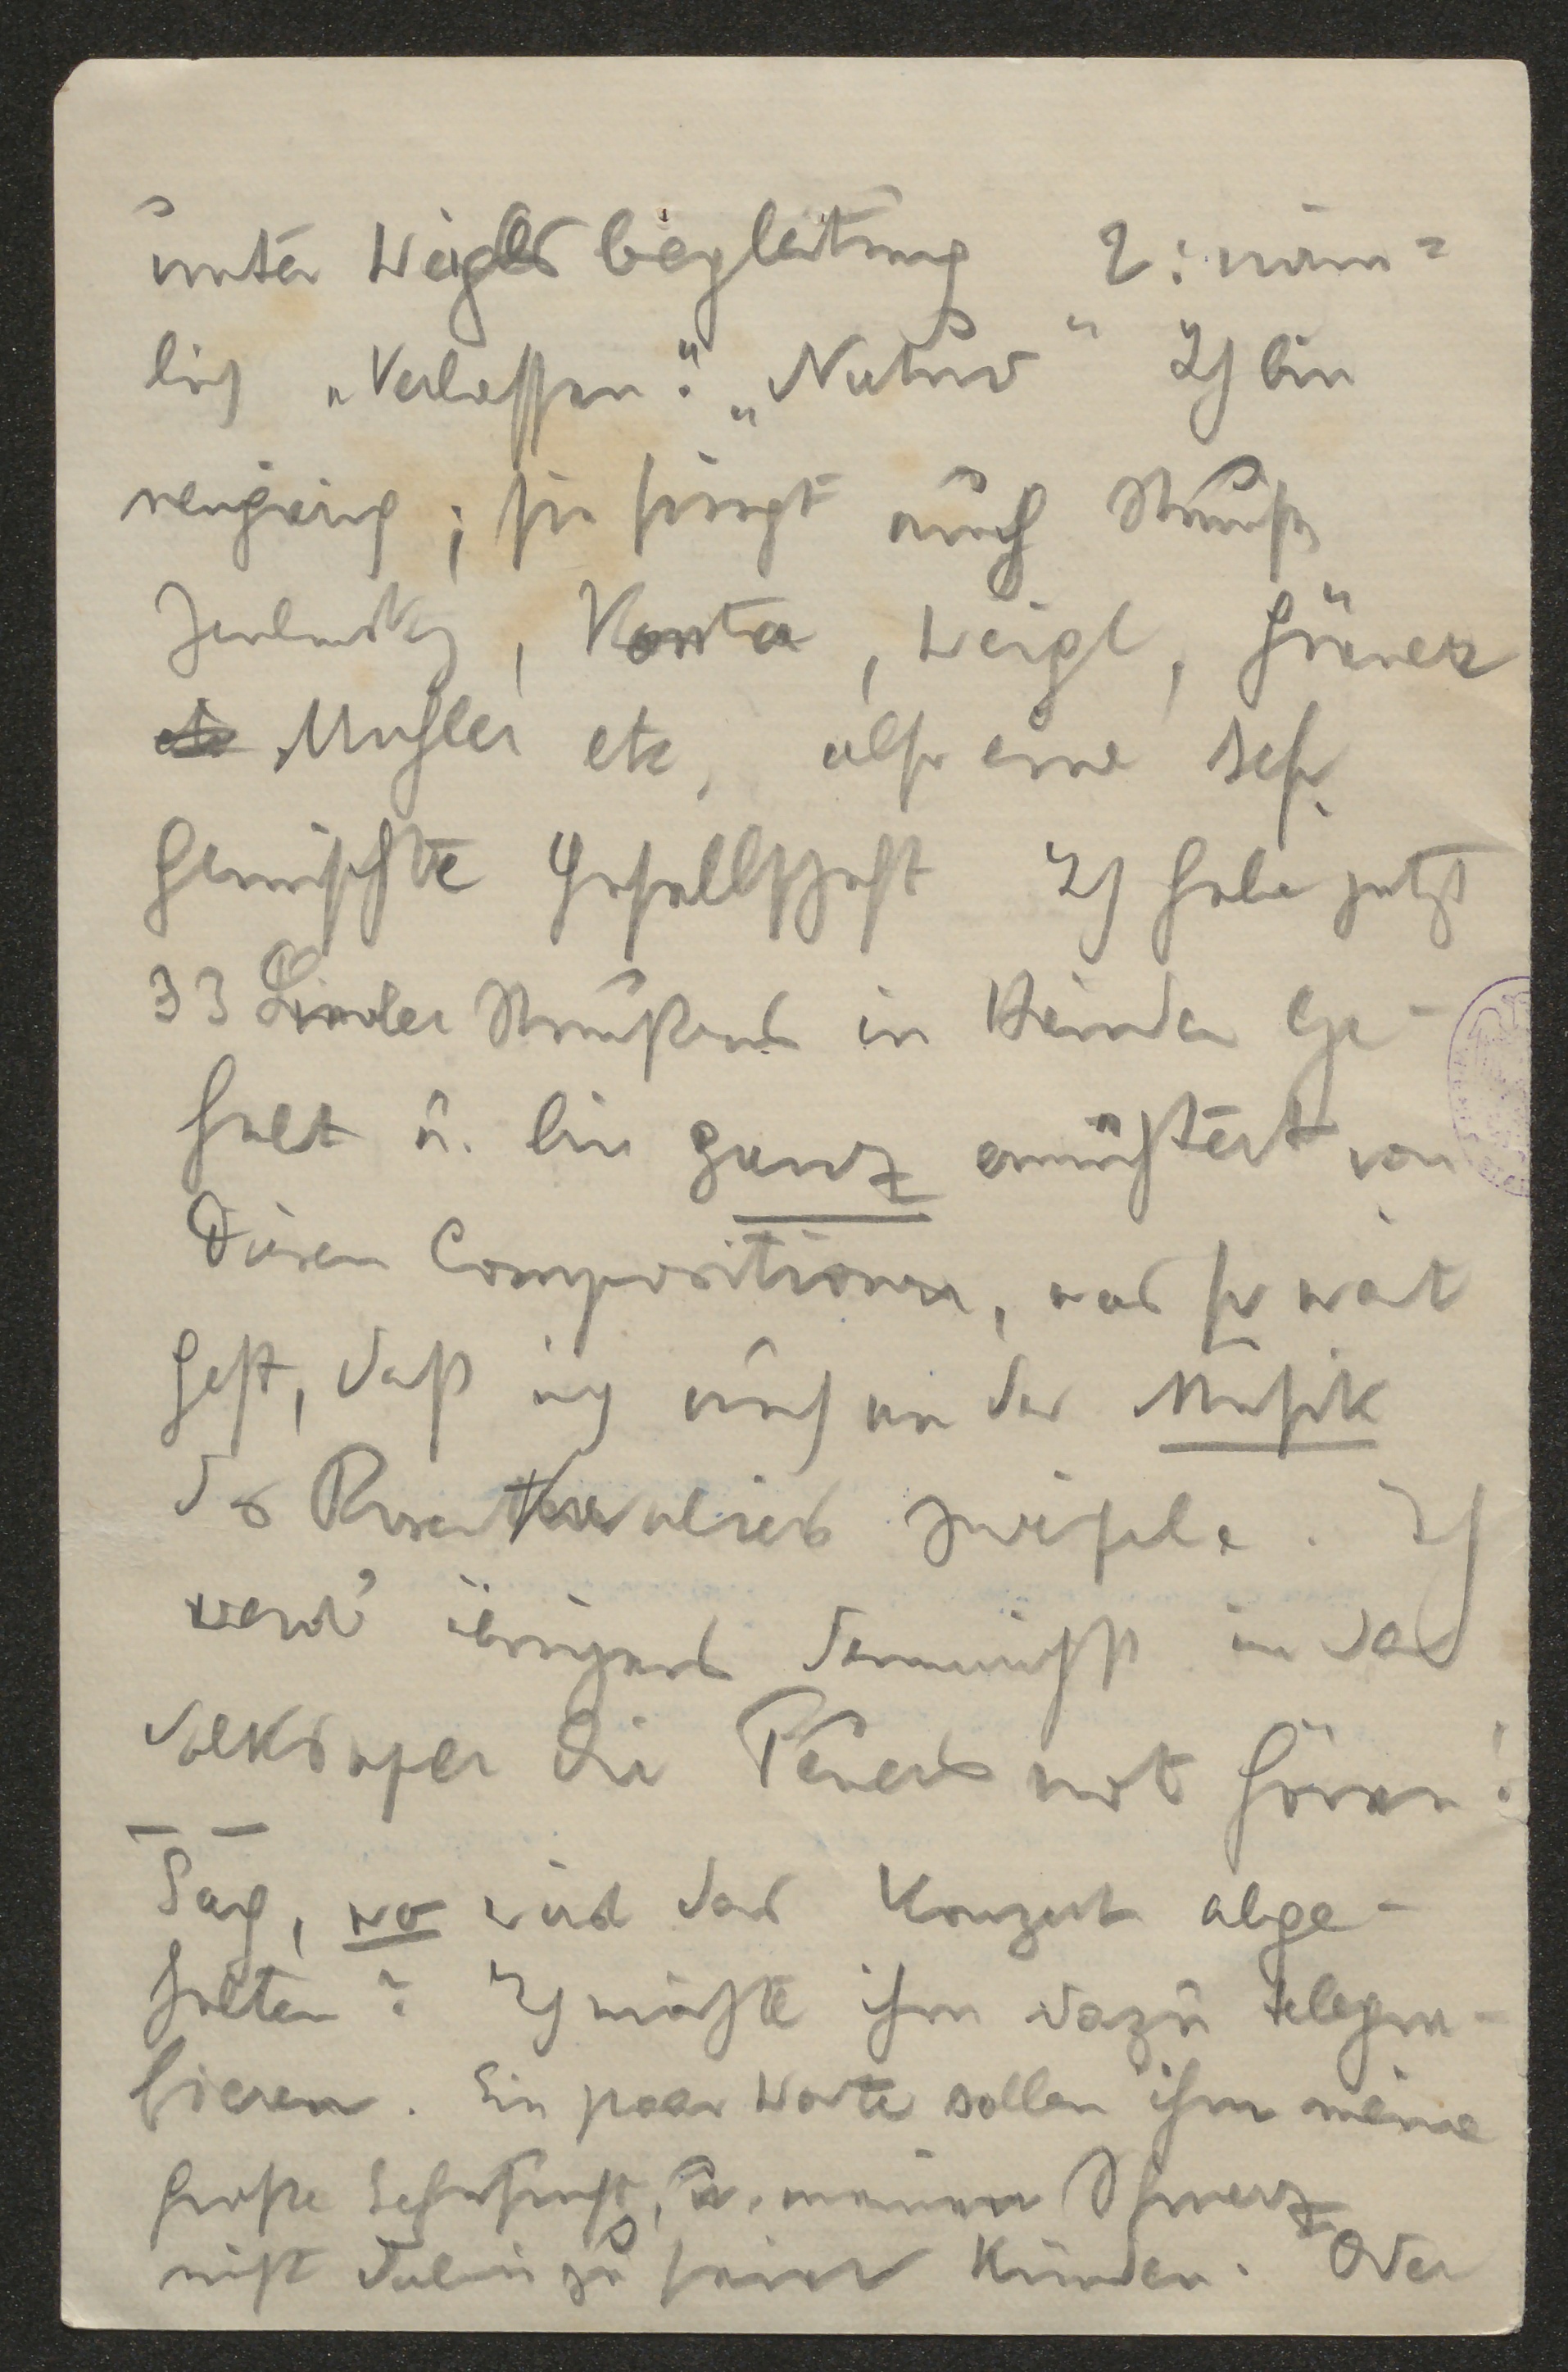 unter Weigls begleitung 2: näm=
lich „Verlassen“: „Natur“ Ich bin
neugierig; sie singt auch Strauß
Zemlinsky, Konta, Weigl, Gräner
Mahler etc, also eine sehr
gemischte Gesellschaft Ich habe jetzt
33 Lieder Straußens in Händen ge-
habt u. bin ganz ernüchtert von
diesen Compositionen, was so weit
geht, daß ich auch an der Musik
des Rosenkavaliers zweifele. Ich
werd' übrigens demnächst in der
Volksoper die Feuersnot hören!
Sag, wo wird das Konzert abge-
halten? Ich möchte ihm dazu telegra-
fieren. Ein paar Worte sollen ihm meine
große Sehnsucht, u. meinen Schmerz
nicht dabei zu sein künden. Oder